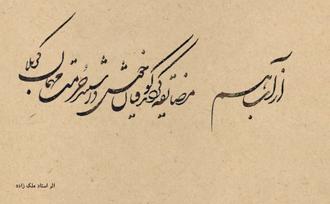 از آب هم مضایقه کردند کوفیان خوش داشتند حرمت مهمان کربلا
اثر استاد ملک زاده